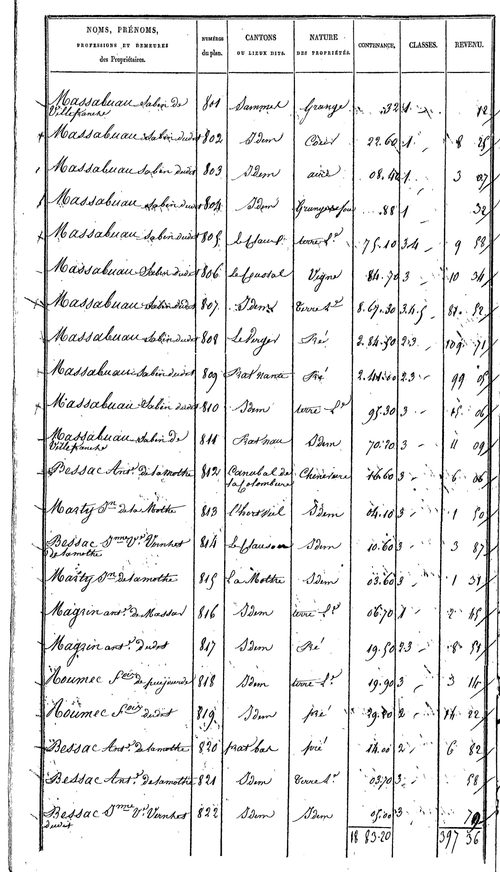 NOMS, PRÉNOMS, PROFESSIONS ET DEMEURES des Propriétaires. | NUMÉROS du plan. | CANTONS OU LIEUX DITS. | NATURE DES PROPRIÉTÉS. | CONTENANCE, | CLASSES. | REVENU.
Massabuau Sabin de Villefranche 801 Sammet Grange 32 1 12
Massabuau Sabin dudot 802 Idem Cour 22.60 1 8 25
Massabuau Sabin dudot 803 Idem aire 08.40 1 3 07
Massabuau Sabin dudot 804 Idem Grange 88 1 32
Massabuau Sabin dudot 805 terre Le 75.10 3 4 9 58
Massabuau Sabin dudot 806 Vigne 84.70 3 10 34
Massabuau Sabin dudot 807 Idem terre Le 8.67.30 3.4.5 81 52
Massabuau Sabin dudot 808 Le Verger Pré 2.84.50 2 3 109 71
Massabuau Sabin dudot 809 Prat nante Pré 2.41.00 2 3 99 05
Massabuau Sabin dudot 810 Idem terre Le 95.30 3 15 06
Massabuau Sabin de Villefranche 811 Prat nau Idem 70.20 3 11 09
Bessac Ant. de lamothe 812 Canabal de la Colombière Chenevière 16.60 3 6 06
Marty Jn de la Mothe 813 L'hort viel Idem 04.10 3 1 50
Bessac Jme Ve Vernhet de lamothe 814 Idem 10.60 3 3 87
Marty Jn de lamothe 815 La Mothe Idem 03.60 3 1 31
Magrin ant. de Massar 816 Idem terre Le 06.70 1 2 45
Magrin ant. dudot 817 Idem Pré 19.50 2 3 8 51
Noumec fois de puijourde 818 Idem terre Le 19.90 3 3 14
Noumec fois dudot 819 Idem pré 29.20 2 14 22
Bessac Ant. de lamothe 820 prat bas pré 14.00 2 6 82
Bessac Ant. de lamothe 821 Idem terre Le 03.70 3 58
Bessac Jme Ve Vernhet dudot 822 Idem Idem 05.00 3 79
18 83.20 397 36